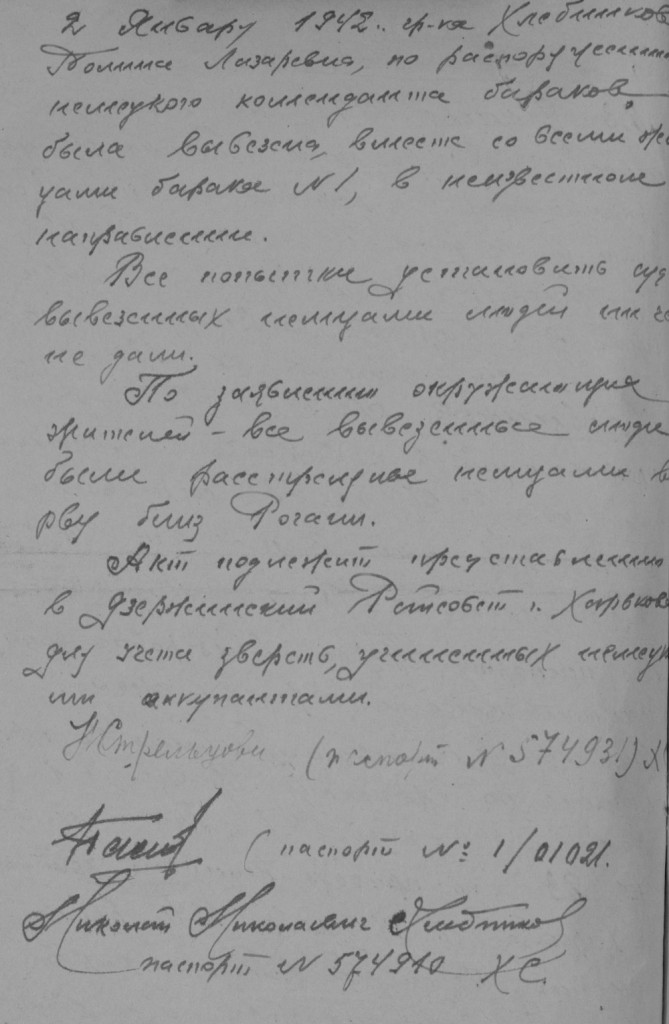 2 Январу 1942. гр-ка Хлебников
Полина Лазаревна, по распоружению
немецкого комменданта бараков,
была вывезена, вместе со всеми жи
цами барака №1, в неизвестном
направлении.
Все попытки установить суд
вывезенных немцами людей ниче
не дали.
По заявлению окружающих
жителей - все вывезенные люди
были расстреляны немцами в
рву близ Рогани.
Акт подлежит представлению
в Дзержинский Райсовет г. Харькова
для учета зверств, учиненных немецк
ими оккупантами.
Н Стрельцова (паспорт № 574931) Х
(паспорт №: 1/01021.
Николай Николаевич Хлебников
паспорт № 574910 ХС.